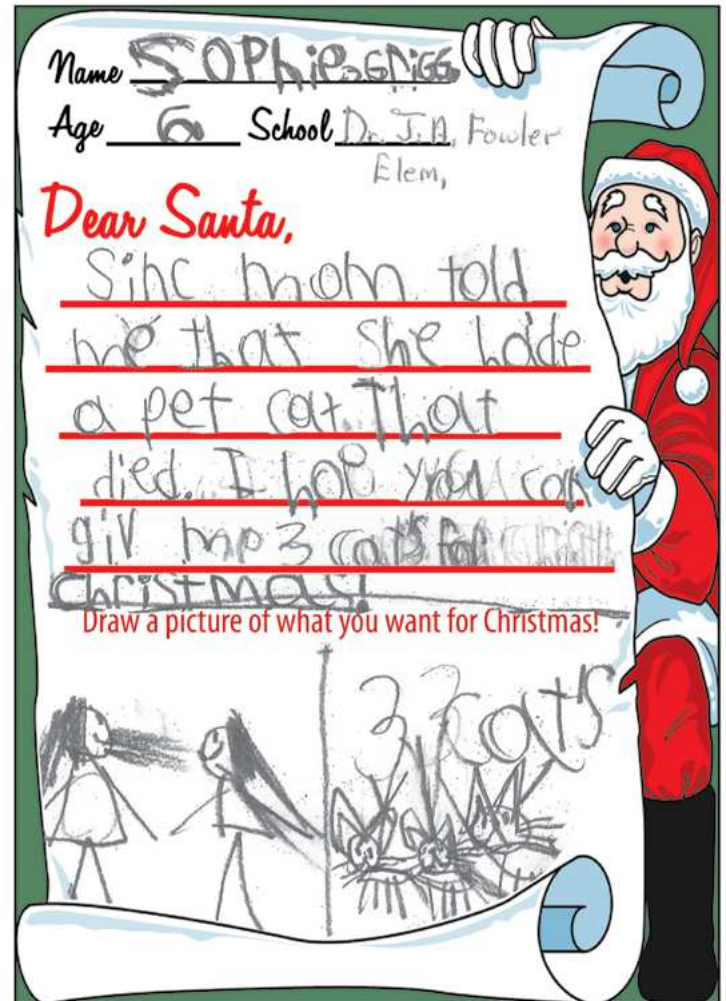 Name SOPhie GRiGG
Age 6 School Dr. J.A. Fowler
Elem,
Dear Santa,
Sinc mom told
me that she hade
a pet cat. That
died. I hop you can
giv me 3 cats for
christmas!
Draw a picture of what you want for Christmas!
3 cats